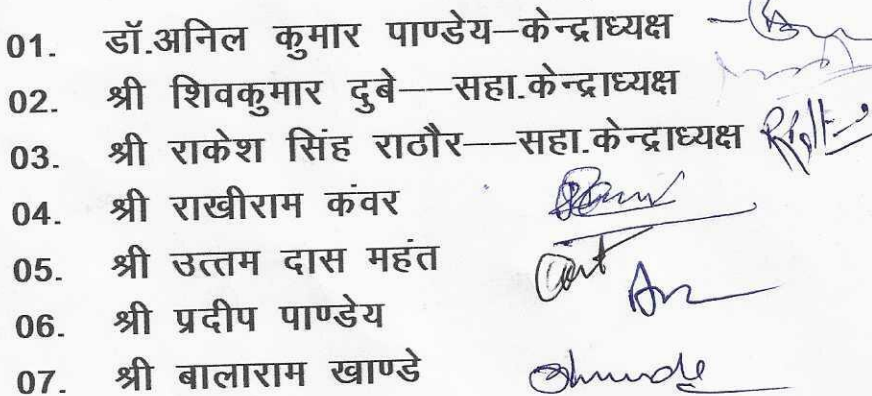 01. डॉ.अनिल कुमार पाण्डेय–केन्द्राध्यक्ष
02. श्री शिवकुमार दुबे––सहा.केन्द्राध्यक्ष
03. श्री राकेश सिंह राठौर––सहा.केन्द्राध्यक्ष
04. श्री राखीराम कंवर
05. श्री उत्तम दास महंत
06. श्री प्रदीप पाण्डेय
07. श्री बालाराम खाण्डे